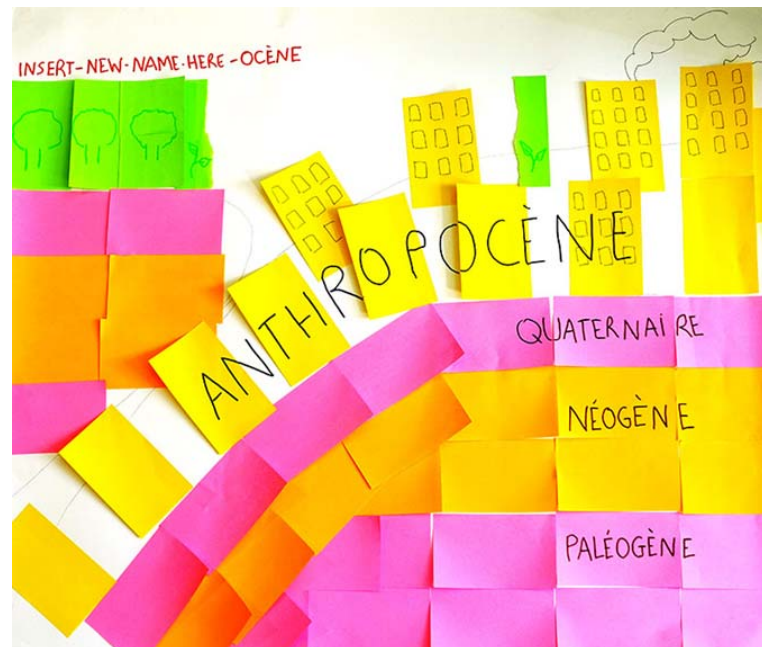 INSERT-NEW-NAME-HERE-OCÈNE
ANTHROPOCÈNE
QUATERNAIRE
NÉOGÈNE
PALÉOGÈNE